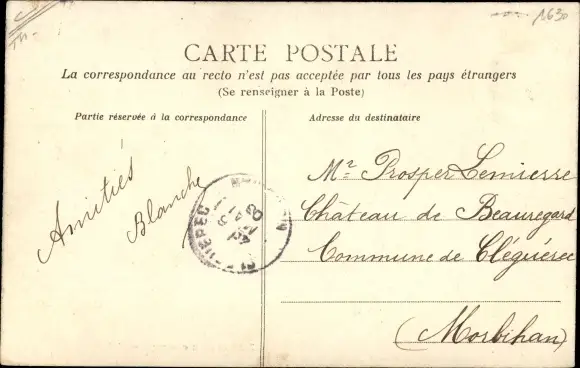 CARTE POSTALE
La correspondance au recto n'est pas acceptée par tous les pays étrangers
(Se renseigner à la Poste)
Partie réservée à la correspondance
Adresse du destinataire
Amitiés
Blanche
Mr Prosper Lemiesse
Château de Beauregard
Commune de Cléguérec
(Morbihan)